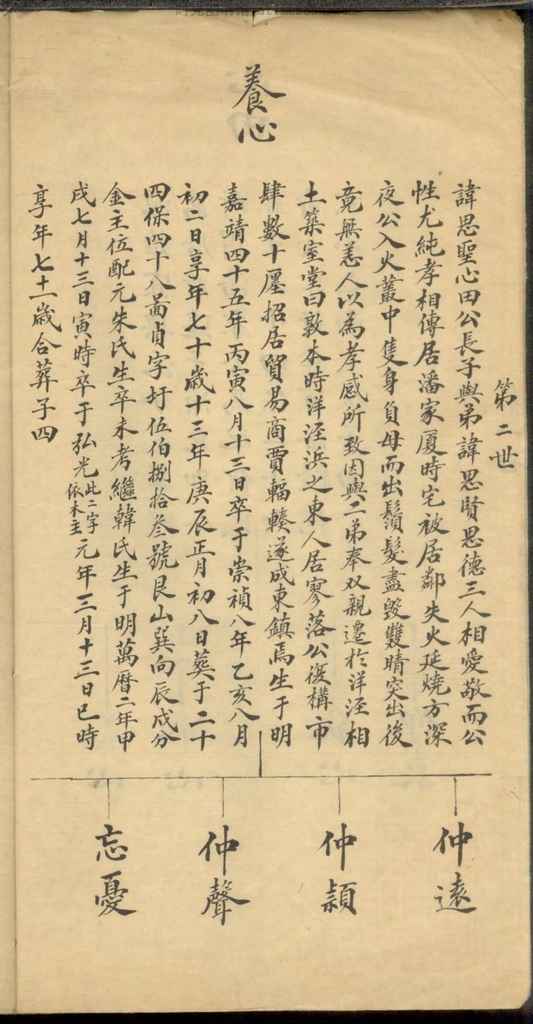 第二世
養心
諱思聖心田公長子與弟諱思賢思德三人相愛敬而公
性尤純孝相傳居潘家厦時宅被居鄰失火延燒方深
夜公入火叢中隻身負母而出鬚髮盡毀雙睛突出後
竟無恙人以為孝感所致因與二弟奉双親遷於洋涇相
土築室堂曰敦本時洋涇浜之東人居寥落公復構市
肆數十廛招居貿易商賈輻輳遂成東鎮焉生于明
嘉靖四十五年丙寅八月十三日卒于崇禎八年乙亥八月
初二日享年七十歲十三年庚辰正月初八日葬于二十
四保四十八啚貞字圩伍伯捌拾叁號艮山巽向辰戌分
金主位配元朱氏生卒未考繼韓氏生于明萬曆二年甲
戌七月十三日寅時卒于弘光此二字依木主元年三月十三日巳時
享年七十二歲合葬子四
仲遠
仲穎
仲聲
忘憂